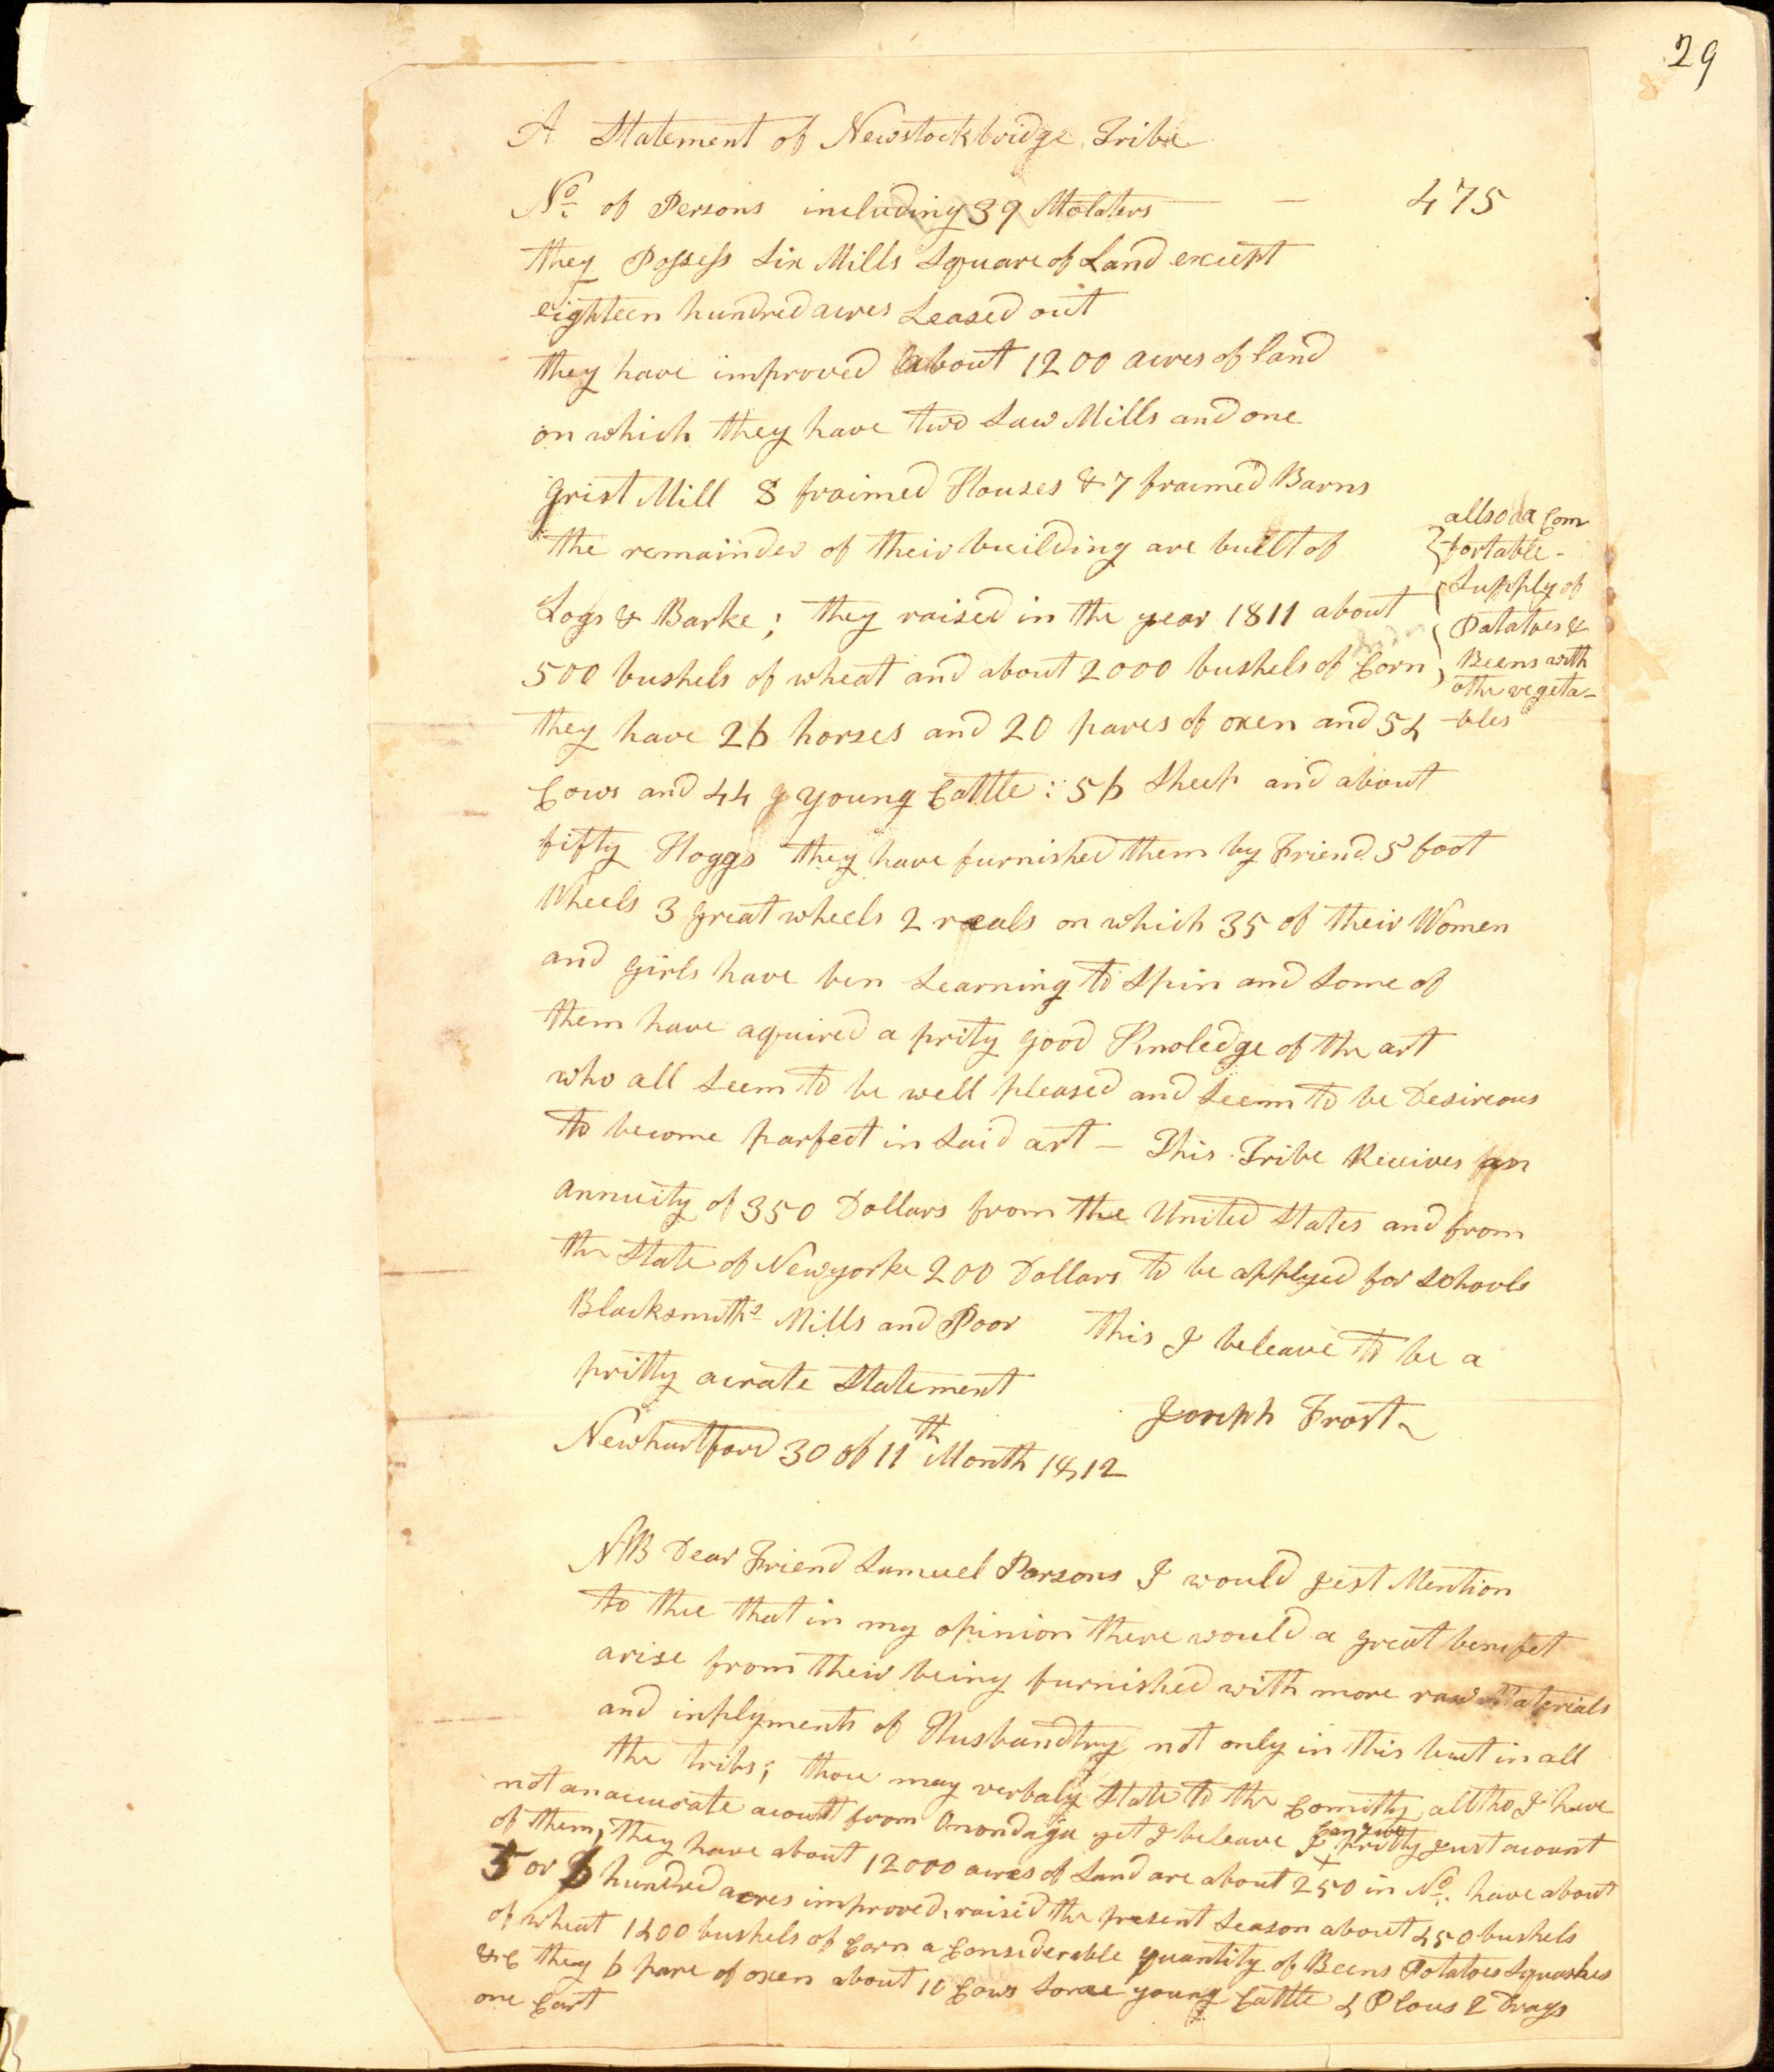 29
A Statement of Newstockbridge Tribe
No. of Persons including 39 Molaters — — 475
they Possess Six Mills Square of Land except
eighteen hundred acres Leased out
they have improved about 1200 acres of land
on which they have two Saw Mills and one
grist Mill 8 fraimed Houses & 7 fraimed Barns
the remainder of their building are built of
Logs & Barke; they raised in the year 1811 about
500 bushels of wheat and about 2000 bushels of Corn,
allso a Com
fortable -
Supply of
Patatoes &
Beens with
othr vegeta-
-bles
they have 26 horses and 20 pares of oxen and 54
Cows and 44 young Cattle: 56 Sheep and about
fifty Hoggs they have furnished them by Friend 5 foot
Wheels 3 great wheels 2 reals on which 35 of their Women
and girls have ben Learning to Spin and Some of
them have aquired a prity good Knoledge of the art
who all Seem to be well pleased and Seem to be Desireous
to become parfect in Said art — This Tribe Receives an
annuity of 350 Dollars from the United States and from
the State of Newyorke 200 Dollars to be applyed for Schools
Blacksmiths Mills and Poor this I beleave to be a
pritty acrate Statement
Joseph Frost
Newhartford 30 of 11th Month 1812
NB Dear Friend Samuel Parsons I would jest Mention
to thee that in my opinion there would a great benifet
arise from their being furnished with more raw Materials
and inplyments of Husbandtry not only in this but in all
the tribs; thou may verbaly State to the Comitty alltho I have
not an accurate acountt from Onondaga yet I beleave I can give pritty just acount
of them, they have about 12000 acres of Land are about 250 in No. have about
5 or 6 hundred acres improved, raisid the present Season about 450 bushels
of wheat 1400 bushels of Corn a Considerable quantity of Beens Potatoes Squashes
&c they 6 pare of oxen about 10 Cows Some young Cattle 4 Plous 2 Drags
one Cart